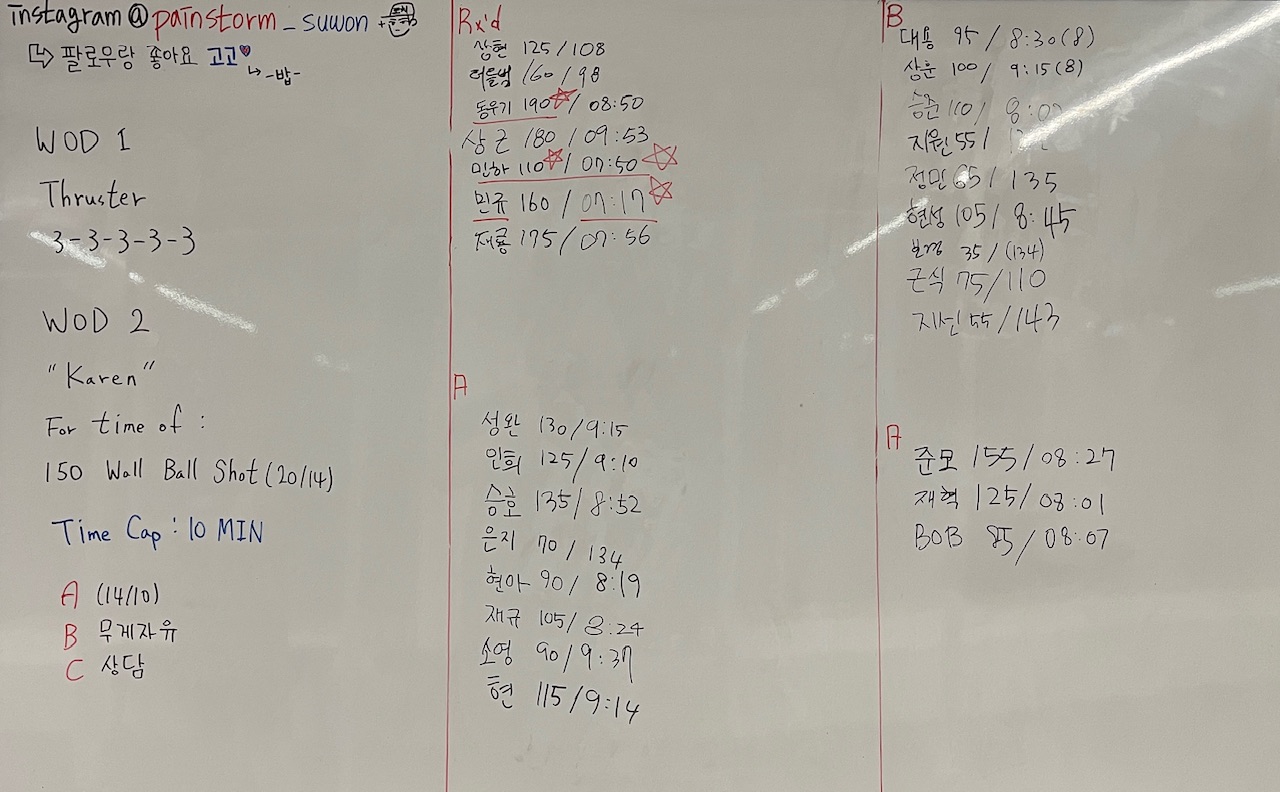 instagram@painstorm_suwon +
팔로우랑 좋아요 고고♥
↳ -밥-
WOD 1
Thruster
3-3-3-3-3
WOD 2
"Karen"
For time of :
150 Wall Ball Shot (20/14)
Time Cap : 10 MIN
A (14/10)
B 무게자유
C 상담
Rx'd
상현 125 / 108
160 / 98
동우기 190☆ / 08:50
상근 180 / 09:53
민하 110☆ / 07:50 ☆
민규 160 / 07:17 ☆
재룡 175 / 07:56
A
성완 130 / 9:15
인희 125 / 9:10
승호 135 / 8:52
은지 70 / 134
현아 90 / 8:19
재규 105 / 8:24
소영 90 / 9:37
현 115 / 9:14
B
대용 95 / 8:30 (8)
상훈 100 / 9:15 (8)
승준 110 /
지원 55 /
정민 65 / 135
현성 105 / 8:45
보경 35 / (134)
근식 75 / 110
지선 55 / 143
A
준모 155 / 08:27
재혁 125 / 08:01
BOB 85 / 08:07